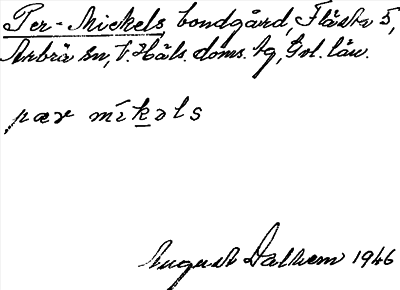 Per-Mickels, bondgård, Flästa 5,
Arbrå sn, V. Häls. doms. tg, Gvl. län.
pær míkəls
August Dalhem 1946